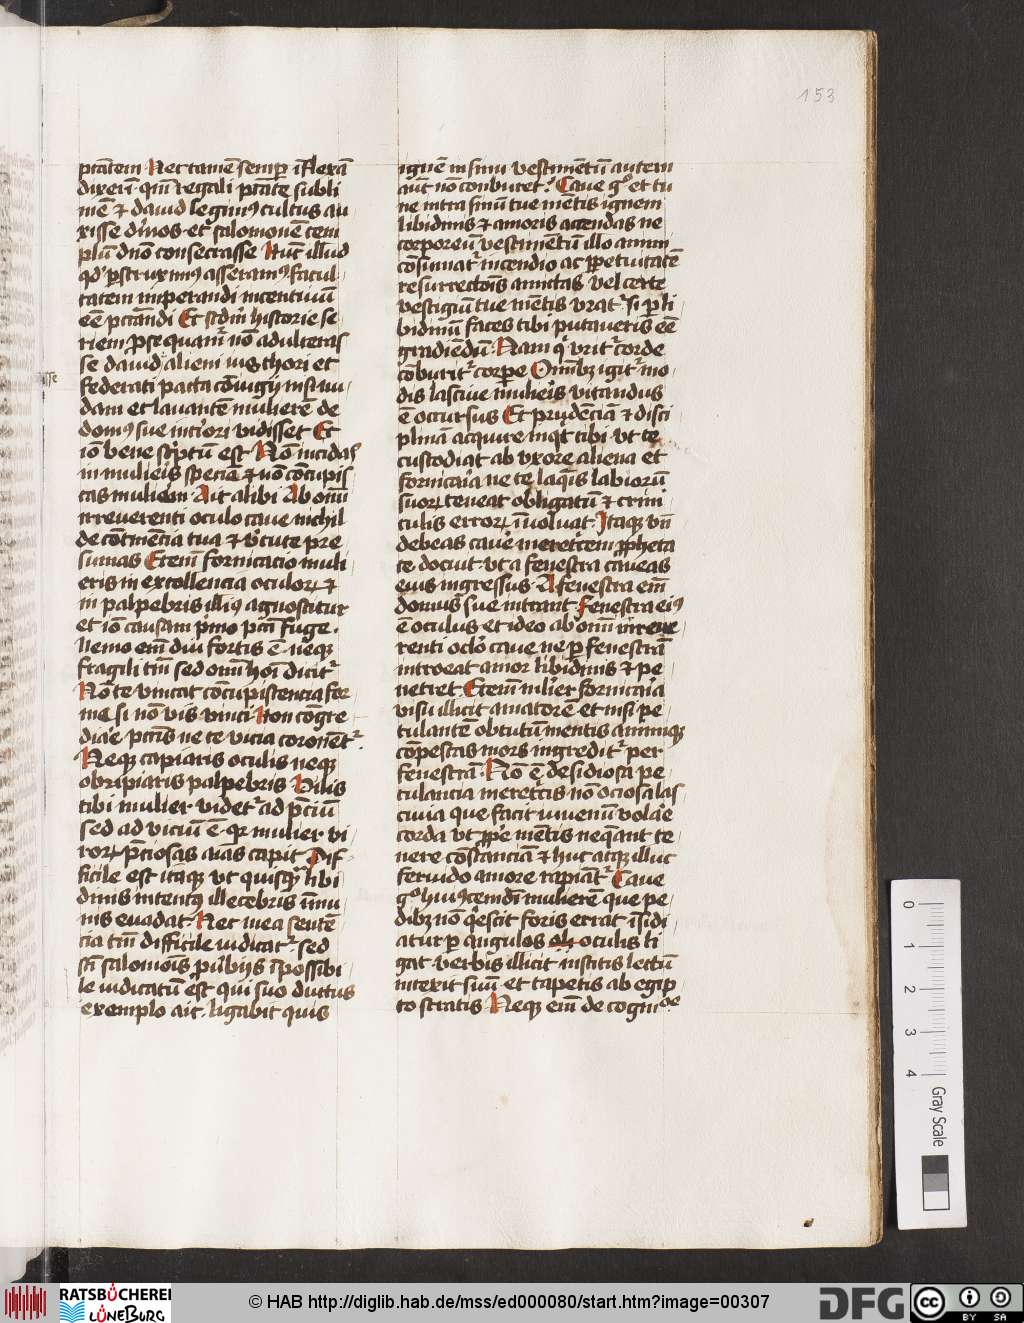 153
ptatem Nec tamē semꝑ ī flexā
dixerī qm̄ regali ptāte subli
mē ⁊ dauid legimꝰ cultus au
xisse diīnos et salomonē tem
plū dn̄o consecrasse Nūc illud
qd' ꝑstruximꝰ asseramꝰ facul
tatem imperandi incentiuū
eē pctandi Et scdm̄ historie se
riem ꝓsequamr̄ nō adulteras
se dauid alieni ius thori et
federati pacta cōiugij nisi nu
dam et lauantē mulierē de
domꝰ sue inctiori vidisset Et
iō bene scptū est Nō incidas
in mulieis speciē ⁊ nō cōcupis
cas muliem Ait alibi Ab om̄i
irreuerenti oculo caue nichil
de cōtinēcia tua ⁊ v'tute pre
sumas Etem̄ fornicatio muli
eris in extollencia oculoꝝ ⁊
in palpebris illiꝰ agnoscitur
et iō causam pͥmo pcti fuge
Nemo em̄ diu fortis ē neqꝫ
fragili tm̄ sed om̄i hoi dicit᷑
Nō te vincat cōcupiscencia for
me si nō vis vinci Non cōgre
diaē pctis ne te vicia coronēt᷑
Neqꝫ capiaris oculis neqꝫ
obripiaris palpebris Vilis
tibi mulier videt᷑ ad p̄ciū
sed ad viciū ē qꝛ mulier vi
roꝝ p̄ciosas aīas capit Dif
ficile est itaqꝫ vt quisqꝫ libi
dinis intentꝰ illecebris īmu
nis euadat Nec mea senten
cia tm̄ difficile iudicat᷑ sed
sc̄i salomōis ꝓubijs īpossibi
le iudicatū est qui suo ductus
exemplo ait ligabit quis
ignē in sinu vestimētū autem
aūt nō conburet Caue gͦ et tu
ne intra sinū tue mētis ignem
libidinis ⁊ amoris accendas ne
corporeū vestimētū illo anim
cōsumat᷑ incendio ac ꝑpetuitatē
resurrectōis amictus vel certe
vestigiū tue mētis vrat᷑ si ꝑ li
bidinū faces tibi putaueris eē
gradiēdū Nam qͥ vrit᷑ corde
cōburit᷑ corpe Omībꝫ igit᷑ mo
dis lasciue muliēis vitandus
ē occursus Et prudēciā ⁊ disci
plinā acquire inqt tibi vt te
custodiat ab vxore aliena et
fornicaīa ne te laqͥs labiorū
suoꝝ teneat obligatū ⁊ crini
culis erroꝝ īuoluat Itaqꝫ vn̄
debeas cauē meretcem ꝓpheta
te docuit vt a fenestra caueas
eius ingressus A fenestra em̄
domus sue intrant fenestra eiꝰ
ē oculus et ideo ab om̄i irreue
renti oclo caue ne ꝑ fenestrā
introeat amor libidinis ⁊ pe
netret Etem̄ mlier fornicaīa
visu illicit amatorē et nisi pe
tulantē obtutū mentis animiqꝫ
cōpescas mors ingredit᷑ per
fenestrā Nō ē desidiosa pe
tulancia meretcis nō ociosa las
ciuia que facit iuuenū volaē
corda vt ꝓpe mētis neqant te
nere cōstanciā ⁊ huc atqꝫ illuc
feruido amore rapiāt᷑ Caue
gͦ huiꝰcemdi mulierē que pe
dibꝫ nō qͥescit foris errat īsidi
atur ꝑ angulos oculis li
gat verbis illicit institis lectū
intexit suū et tapetis ab egip
to stratis Neqꝫ em̄ de cognͦe
0 1 2 3 4
Gray Scale
RATSBÜCHEREI
LÜNEBURG
© HAB http://diglib.hab.de/mss/ed000080/start.htm?image=00307
DFG
CC BY SA